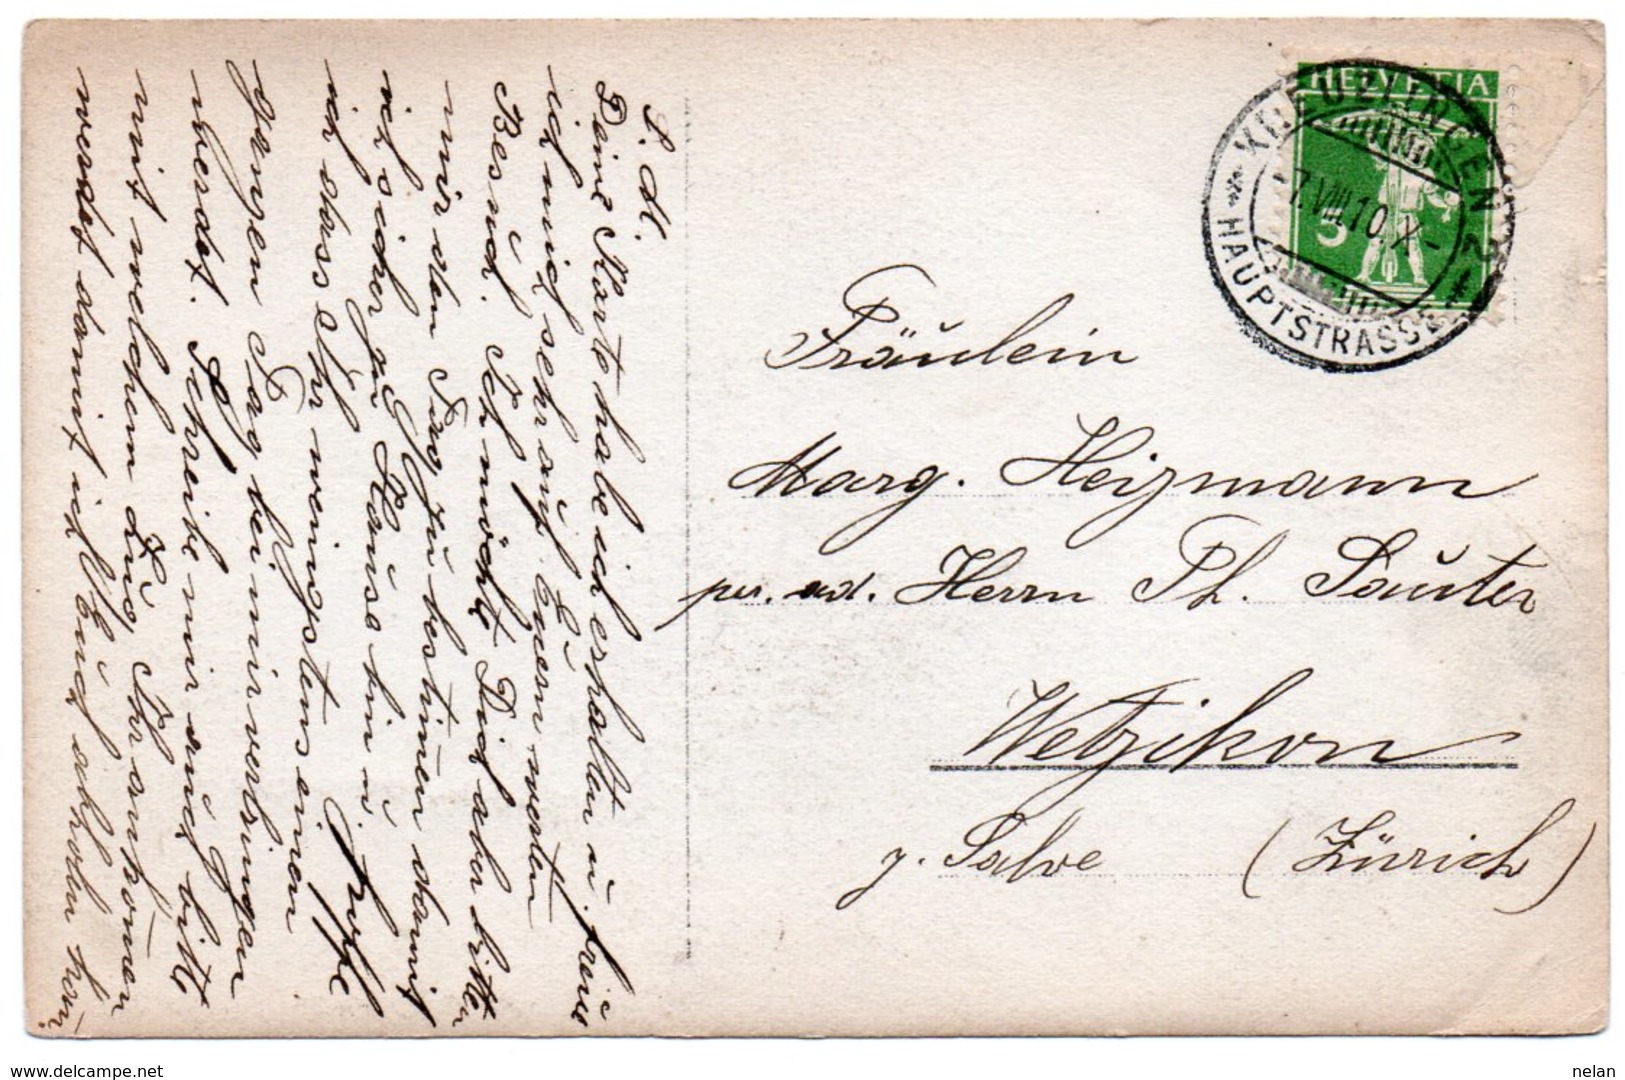 L. M.
Deine Karte habe ich erhalten u. freue
ich mich sehr auf Euern werten
Besuch. Ich möchte Dich aber bitten
mir den Tag zu bestimen damit
ich sicher zu Hause bin u. hoffe
ich dass Ihr wenigstens einen
ganzen Tag bei mir verbringen
werdet. Schreibe mir auch bitte
mit welchem Zug Ihr ankomen
werdet damit ich Euch abholen kan.
HELVETIA
5
KREUZLINGEN 2
7.VIII.10.X-
HAUPTSTRASSE
Fräulein
Marg. Heizmann
per. ad. Herrn Ph. Sauter
Wetzikon
z. Salve (Zürich)
www.delcampe.net
nelan